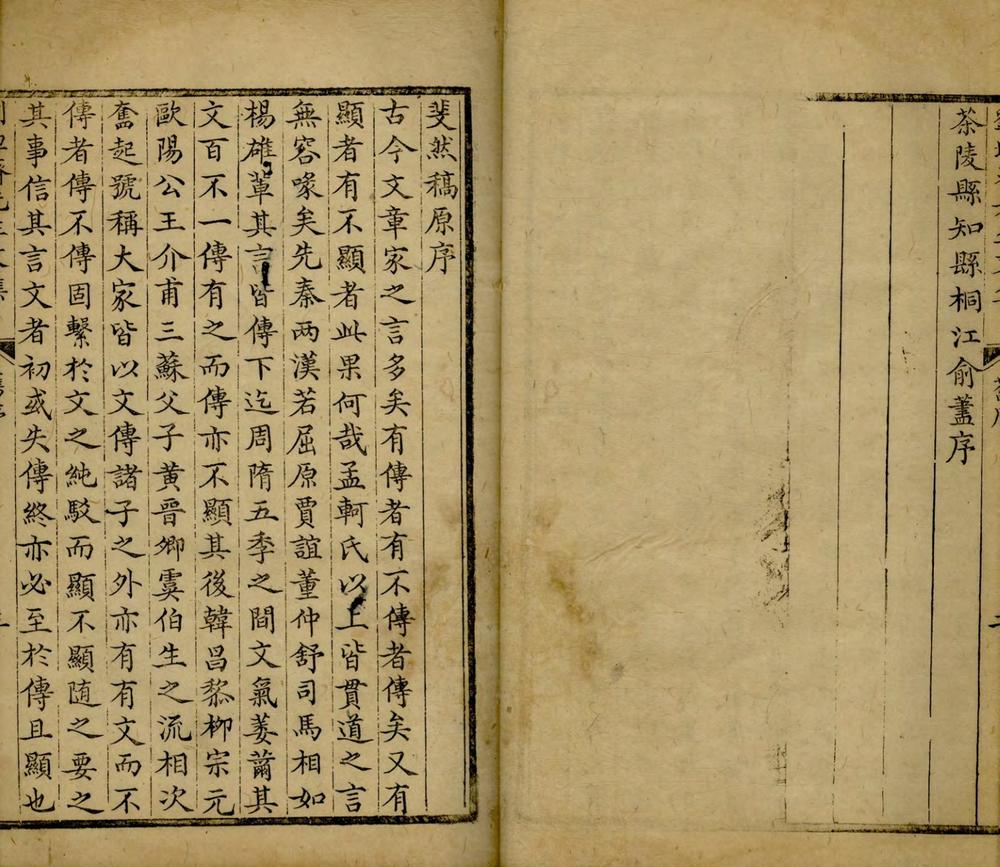 茶陵縣知縣桐江俞藎序
斐然稿原序
古今文章家之言多矣有傳者有不傳者傳矣又有
顯者有不顯者此果何哉孟軻氏以上皆貫道之言
無容喙矣先秦两漢若屈原賈誼董仲舒司馬相如
楊雄軰其言皆傳下迄周隋五季之間文氣萎薾其
文百不一傳有之而傳亦不顯其後韓昌黎柳宗元
歐陽公王介甫三蘇父子黄晉卿虞伯生之流相次
奮起號稱大家皆以文傳諸子之外亦有有文而不
傳者傳不傳固繫於文之純駁而顯不顯随之要之
其事信其言文者初或失傳終亦必至於傳且顯也